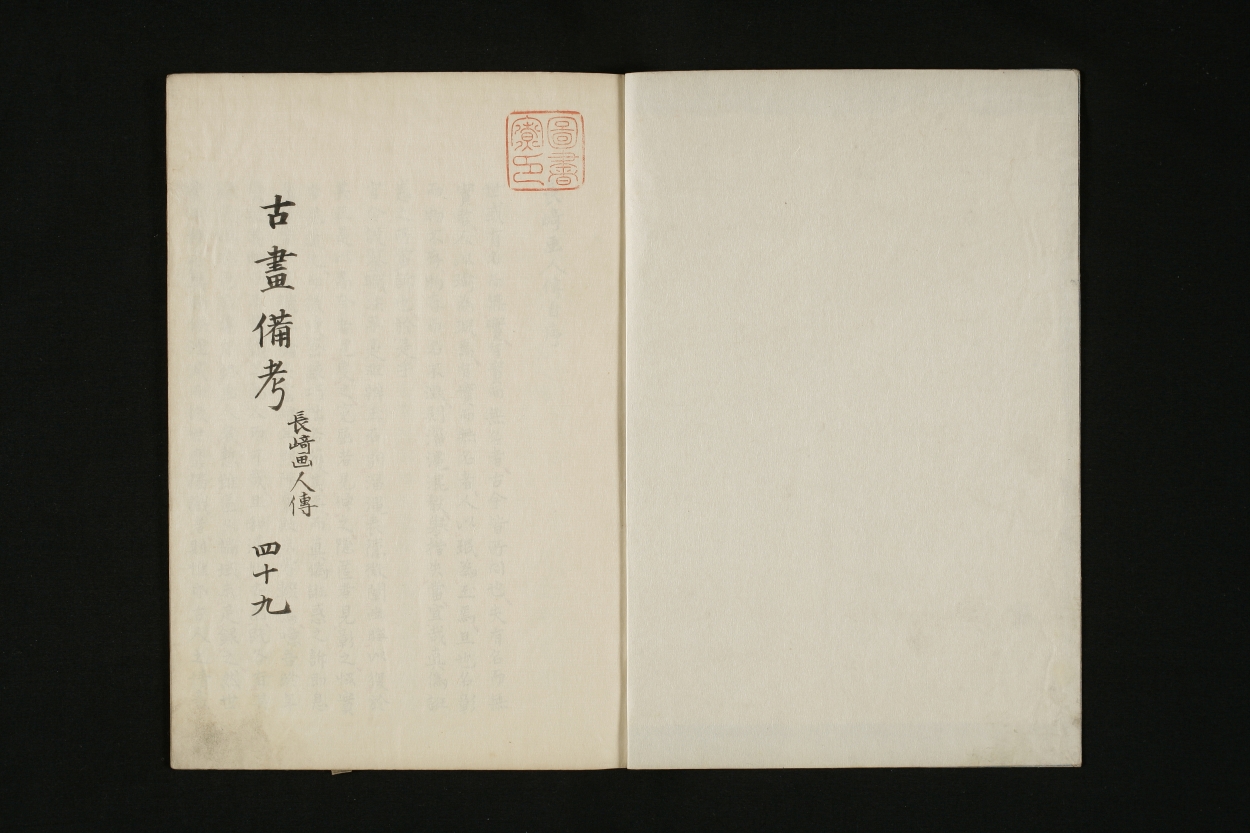 圖書
寮印
古畫備考
長﨑画人傳
四十九